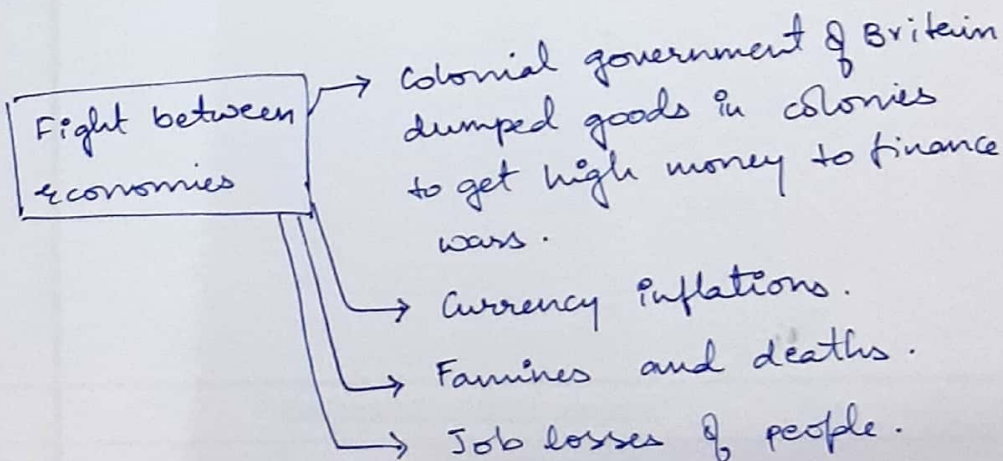 Fight between
economies
Colonial government of Britain
dumped goods in colonies
to get high money to finance
wars.
Currency inflations.
Famines and deaths.
Job losses of people.